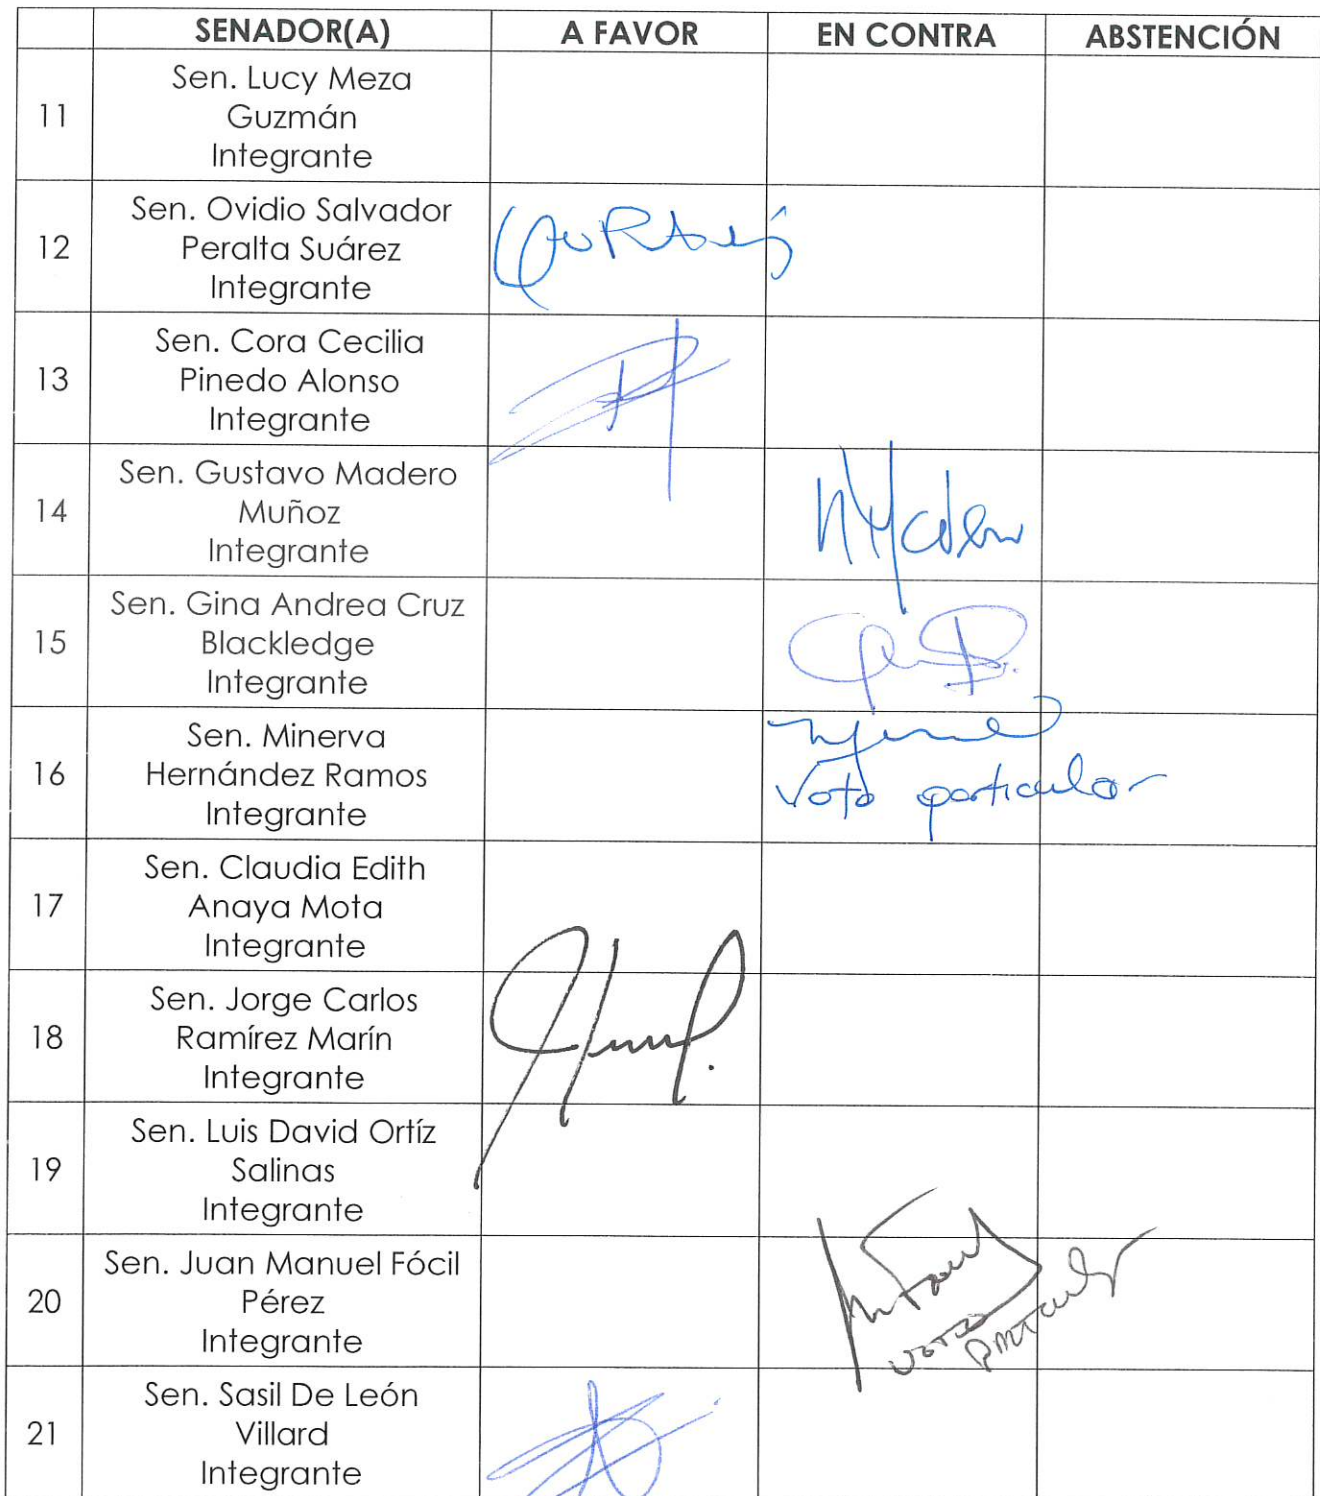 SENADOR(A) A FAVOR EN CONTRA ABSTENCIÓN
11 Sen. Lucy Meza
Guzmán
Integrante
12 Sen. Ovidio Salvador
Peralta Suárez
Integrante
13 Sen. Cora Cecilia
Pinedo Alonso
Integrante
14 Sen. Gustavo Madero
Muñoz
Integrante
15 Sen. Gina Andrea Cruz
Blackledge
Integrante
16 Sen. Minerva
Hernández Ramos
Integrante
Voto particular
17 Sen. Claudia Edith
Anaya Mota
Integrante
18 Sen. Jorge Carlos
Ramírez Marín
Integrante
19 Sen. Luis David Ortíz
Salinas
Integrante
20 Sen. Juan Manuel Fócil
Pérez
Integrante
voto
particular
21 Sen. Sasil De León
Villard
Integrante